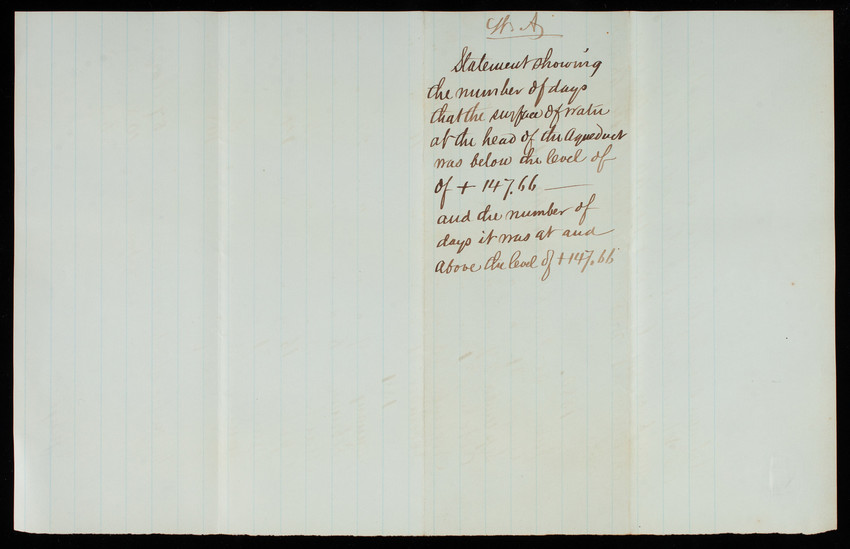 W. A.
Statement showing
the number of days
that the surface of water
at the head of the Aqueduct
was below the level of
of + 147.66 —
and the number of
days it was at and
above the level of + 147.66